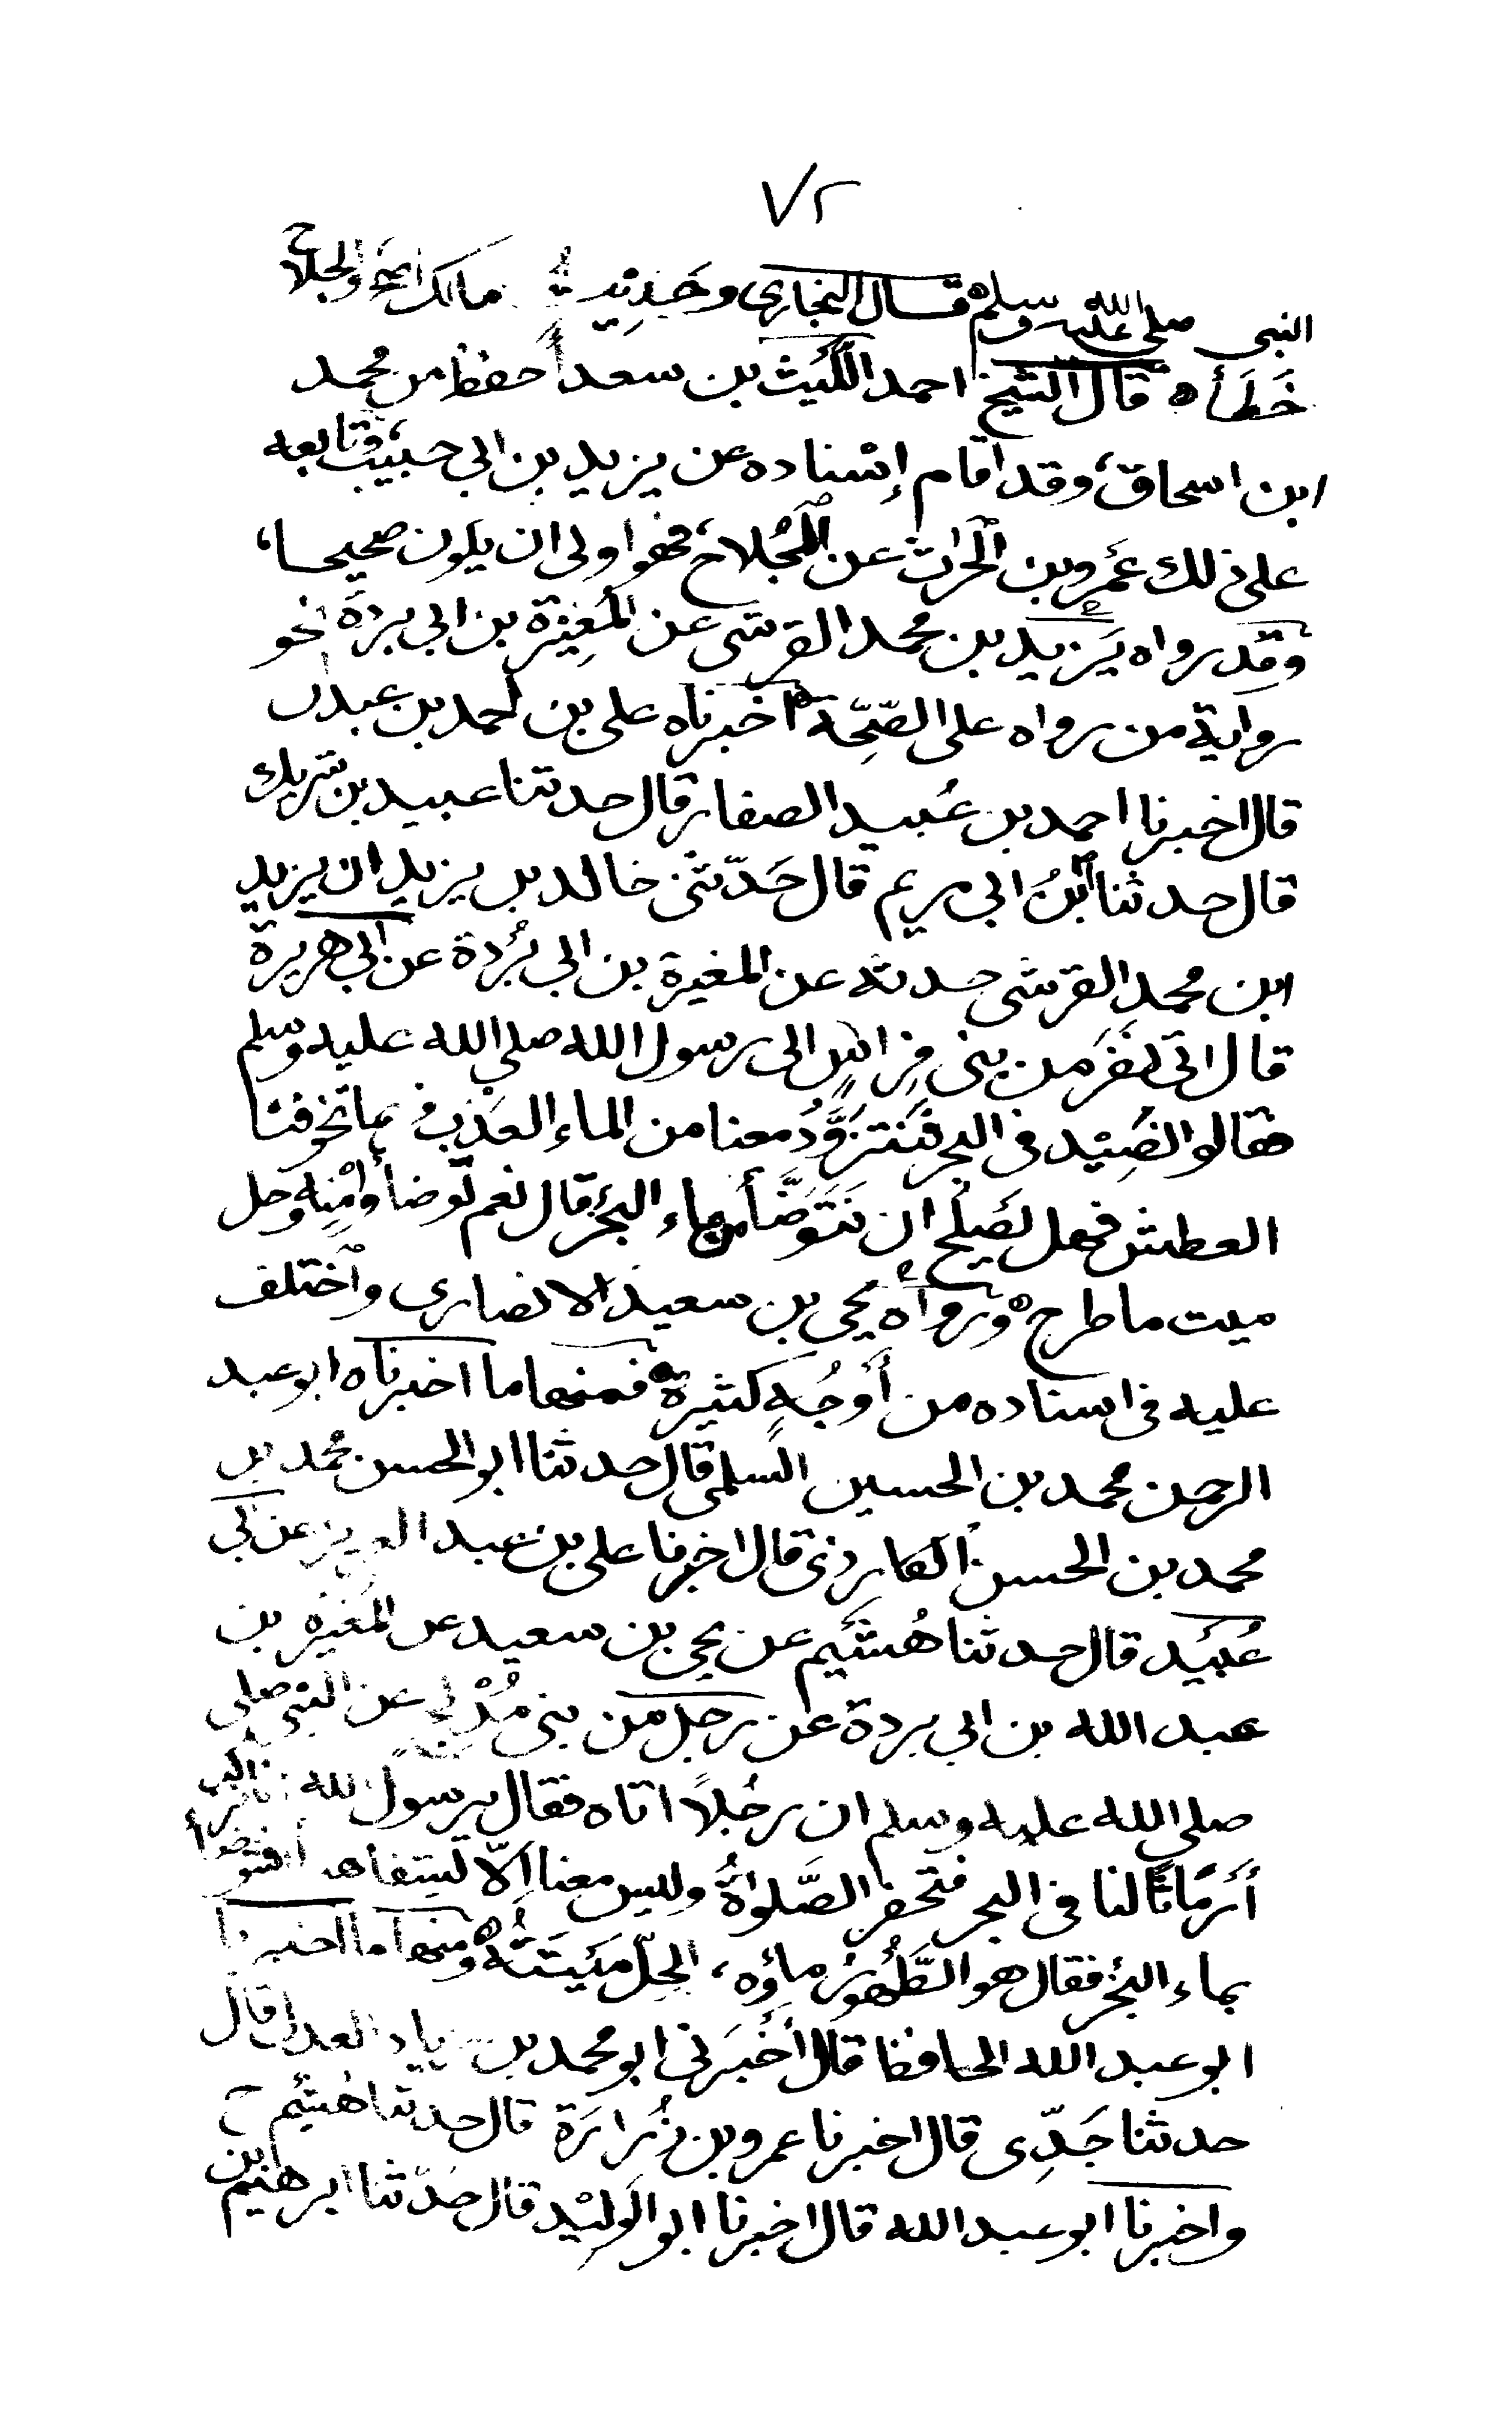 ٧٢
النبي صلى الله عليه وسلم قال البخاري وحديث مالك اصح والجلاح
خَطَأ ه قال الشيخ احمد اللَّيث بن سعد أحفظ من محمد
ابن اسحاق، وقد اقام إسْناده عن يزيد بن ابي حبيب، وتابعه
على ذلك عَمرو بن الحٰرث عن الجُلاح، فهو اولى ان يكون صحيحا،
وقد رواه يَزيد بن محمد القرشى عن المُغِيْرة بن ابي بردة نحو
رواية من رواه على الصّحّة ه اخبرناه على بن احمد بن عبدان
قال اخبرنا احمد بن عُبيد الصفار قال حدثنا عبيد بن شريك
قال حدثنا ابنُ ابى مريم قال حَدّثنى خالد بن يزيد ان يزيد
ابن محمد القرشى حدثه عن المغيرة بن ابي بُردة عن ابي هريرة
قال اتى نَفَر من بنى فِراسٍ الى رسول الله صلى الله عليه وسلم
فقالوا نَصِيْد فى البحر فنَتزَوَّدُ معنا من الماء العَذْب فربما تخوفنا
العطش فهل يَصلح ان نَتَوَضَّأ من ماء البَحْر قال نعم توضأوا مِنْه وحل
ميت ما طرح ه ورواه يحيى بن سعيد الانصارى واختلف
عليه فى اسناده من أوجُهٍ كثيرة ه فمنها ما اخبرناه ابو عبد
الرحمن محمد بن الحسين السلمى قال حدثنا ابو الحسن محمد بن
محمد بن الحسن الكارزى قال اخبرنا على بن عبد العزيز عن ابي
عُبَيْد قال حدثنا هُشَيم عن يحيى بن سعيد عن المغيرة بن
عبد الله بن ابي بردة عن رجل من بنى مُدْلِج عن النبي صلى
صلى الله عليه وسلم ان رجُلاً اتاه فقال يرسول الله انا نركب
أرمَاثًا لنا فى البحر فتحضر الصَّلوٰةُ وليس معنا إلّا لشفاهنا أفنتوضأ
بماء البَحْر فقال هو الطَّهُورُ ماؤه، الحِلّ مَيْتَتُه ه ومنها ما اخبرنا
ابو عبد الله الحافظ قال أخْبَرَنى ابو محمد بن زياد العدل قال
حدثنا جَدِّى قال اخبرنا عمرو بن زُرارَة قال حدثنا هُشيم ح
واخبرنا ابو عبد الله قال اخبرنا ابو الوَلِيْد قال حَدّثنا ابرهيم بن